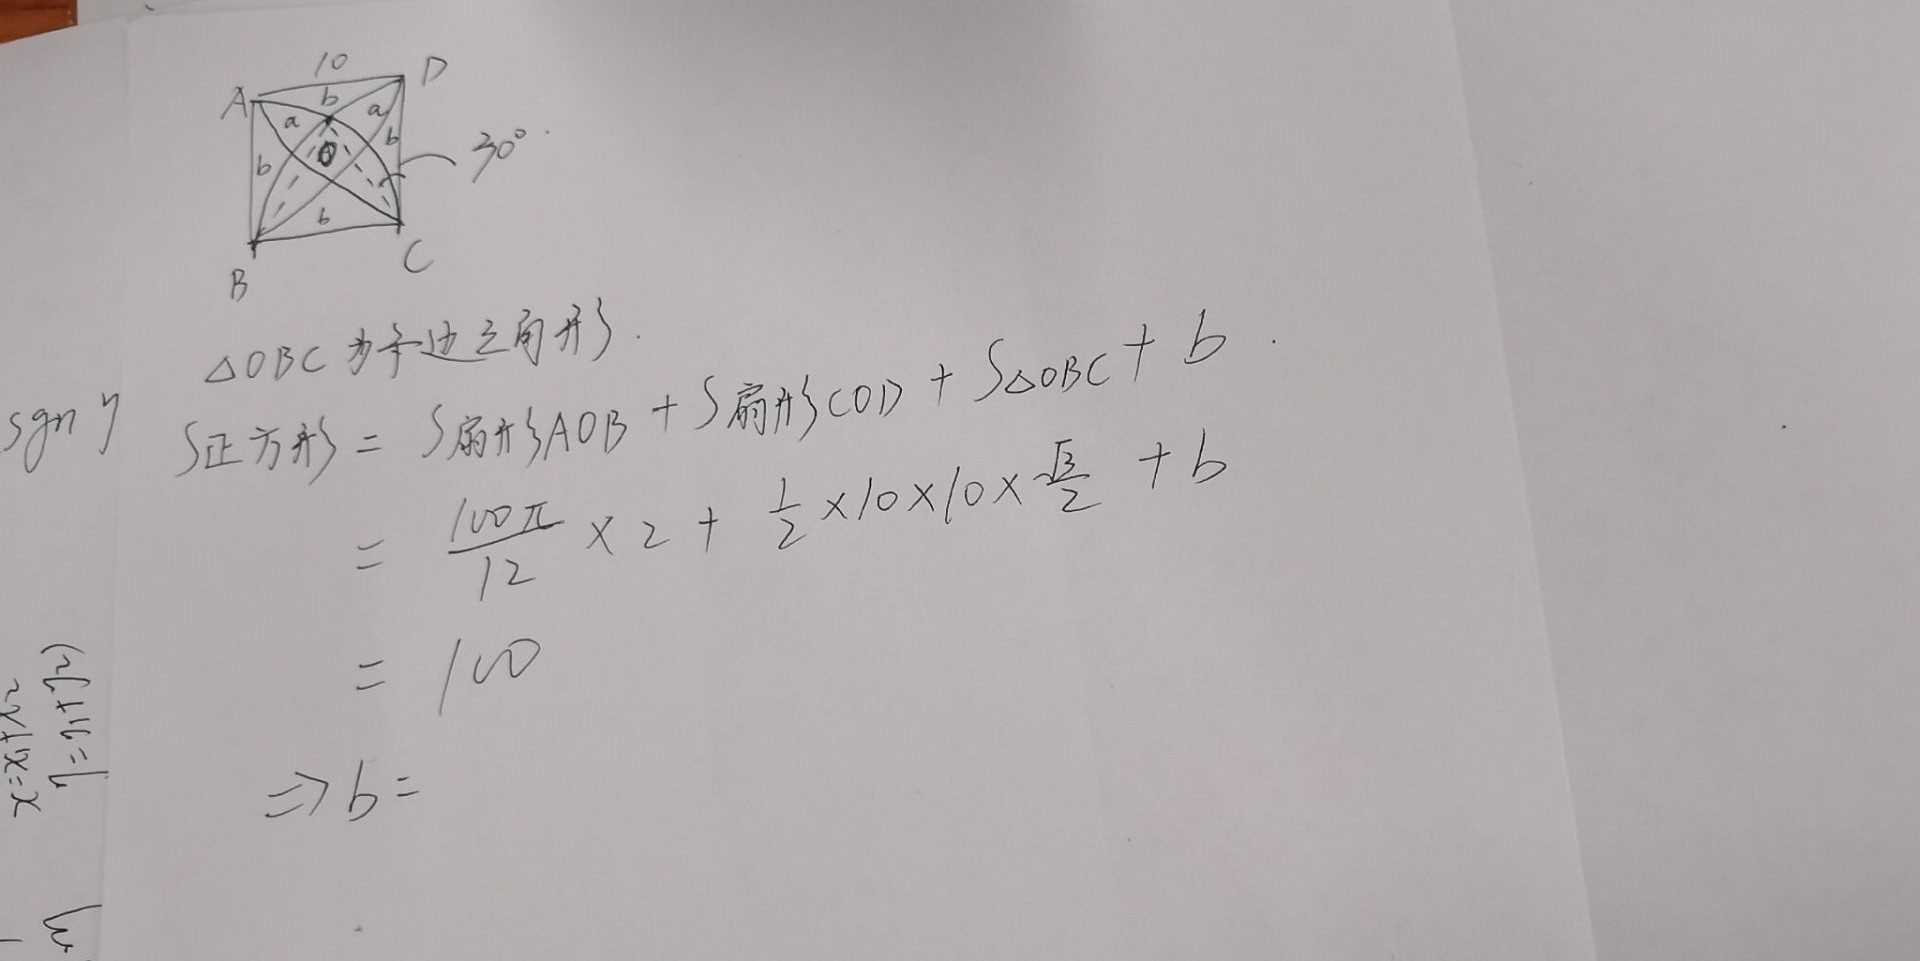 10
A
D
b
a
a
b
b
O
30°
b
B
C
△OBC为等边三角形.
S正方形 = S扇形AOB + S扇形COD + S△OBC + b.
= 100π/12 × 2 + 1/2 × 10 × 10 × √3/2 + b
= 100
⇒ b =
sgn η
x = x₁ + x₂
η = η₁ + η₂)